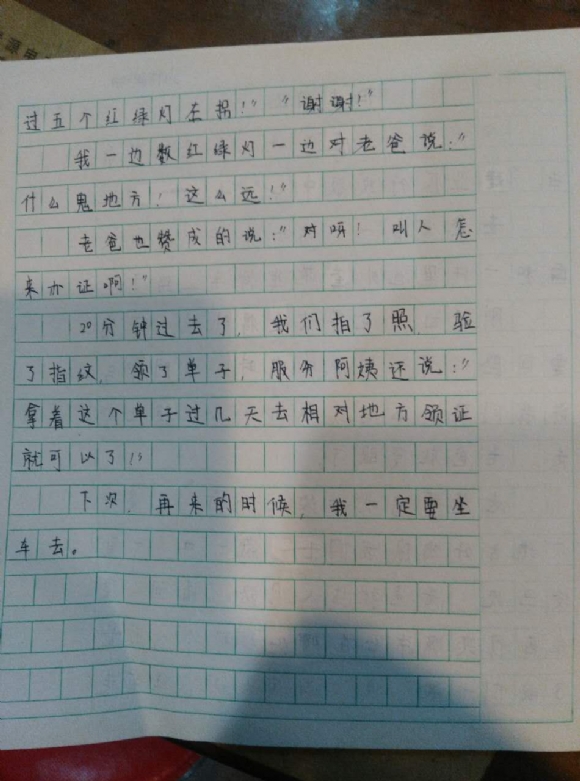 过五个红绿灯左拐！”“谢谢！”
我一边数红绿灯一边对老爸说：“
什么鬼地方！这么远！”
老爸也赞成的说：“对呀！叫人怎
来办证啊！”
20分钟过去了，我们拍了照，验
了指纹，领了单子，服务阿姨还说：“
拿着这个单子过几天去相对地方领证
就可以了！”
下次，再来的时候，我一定要坐
车去。